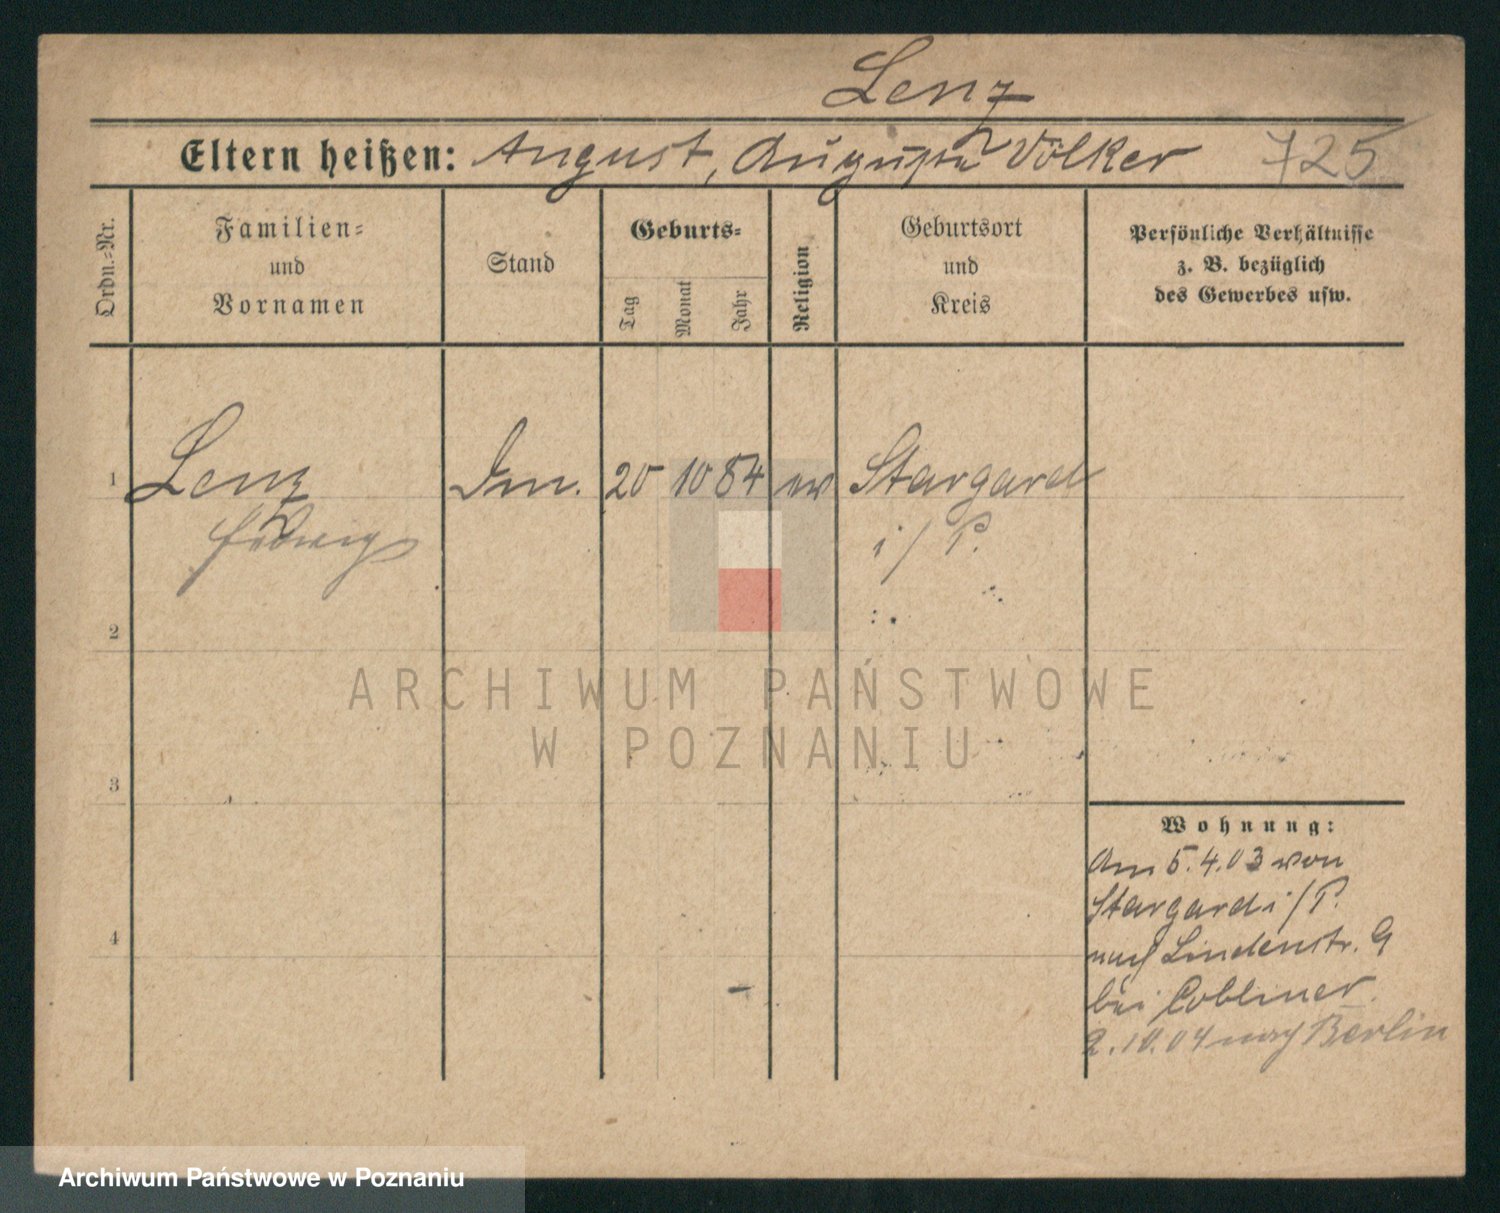 Lenz
Eltern heißen: August, Auguste Völker 725
Ordn.-Nr.
Familien-
und
Vornamen
Stand
Geburts-
Tag
Monat
Jahr
Religion
Geburtsort
und
Kreis
Persönliche Verhältnisse
z. B. bezüglich
des Gewerbes usw.
1 Lenz 20 10 84 ev Stargard
i/P.
2
3
4
Wohnung:
Am 5.4.03 von
Stargard i/P.
nach Lindenstr. 9
bei Cobliner.
2.10.04 nach Berlin
ARCHIWUM PAŃSTWOWE
W POZNANIU
Archiwum Państwowe w Poznaniu